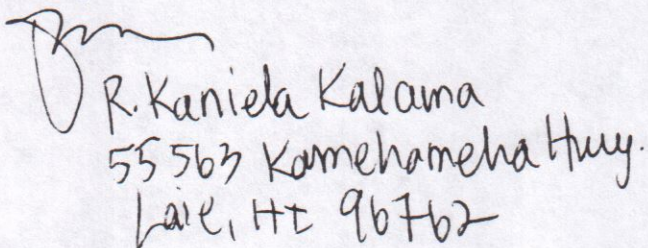 R. Kaniela Kalama
55 563 Kamehameha Hwy.
Laie, HI 96762